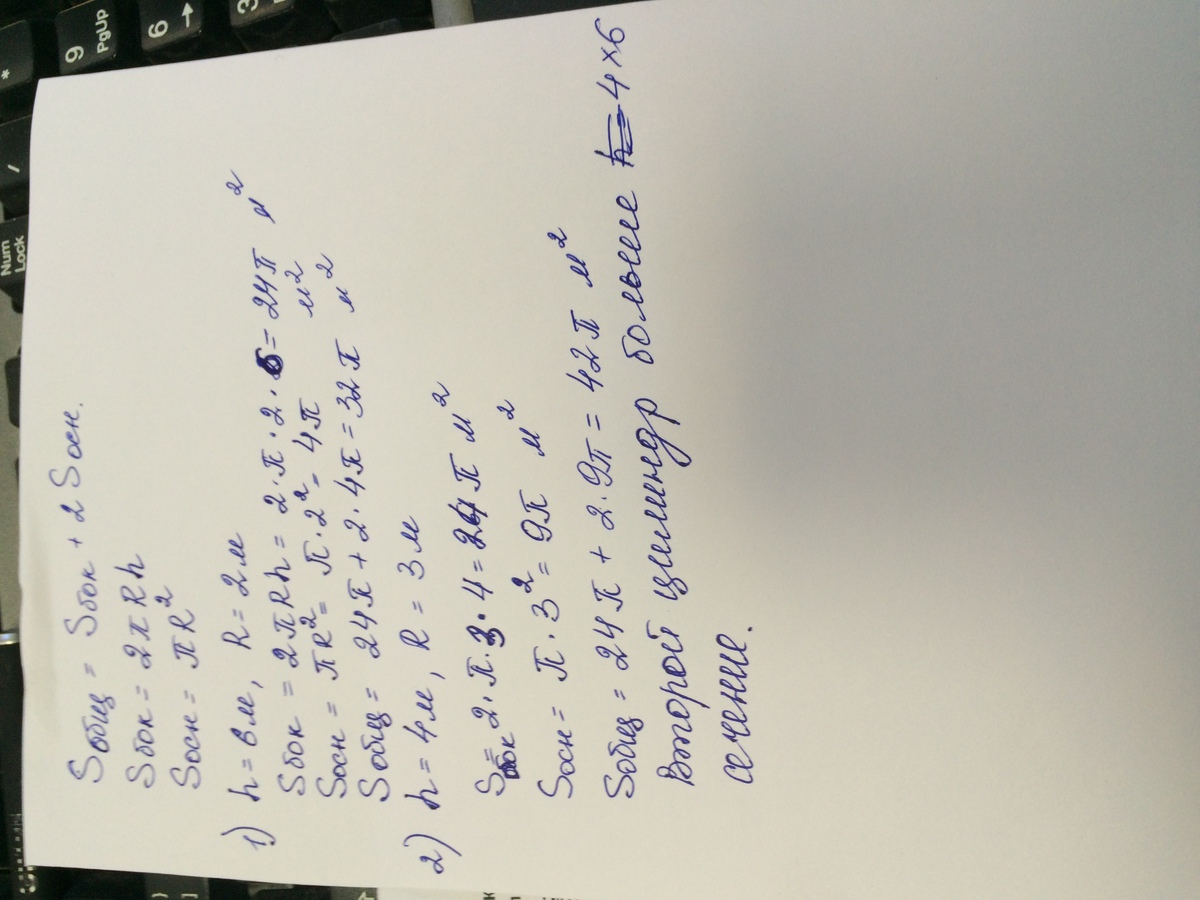 Sобщ = Sбок + 2 Sосн.
Sбок = 2πRh
Sосн = πR²
1) h = 6м, R = 2м
Sбок = 2πRh = 2·π·2·6 = 24π м²
Sосн = πR² = π·2² = 4π м²
Sобщ = 24π + 2·4π = 32π м²
2) h = 4м, R = 3м
Sбок = 2·π·3·4 = 24π м²
Sосн = π·3² = 9π м²
Sобщ = 24π + 2·9π = 42π м²
Второй цилиндр больше 4×6
сечение.
*
9
PgUp
6
→
3
/
Num
Lock